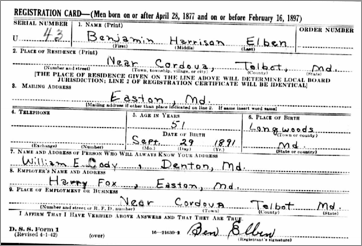 REGISTRATION CARD—(Men born on or after April 28, 1877 and on or before February 16, 1897)
SERIAL NUMBER 1. NAME (Print) ORDER NUMBER
U 43 Benjamin Harrison Elben
(First) (Middle) (Last)
2. PLACE OF RESIDENCE (Print)
Near Cordova, Talbot, Md.
(Number and street) (Town, township, village, or city) (County) (State)
[THE PLACE OF RESIDENCE GIVEN ON THE LINE ABOVE WILL DETERMINE LOCAL BOARD
JURISDICTION; LINE 2 OF REGISTRATION CERTIFICATE WILL BE IDENTICAL]
3. MAILING ADDRESS
Easton, Md.
[Mailing address if other than place indicated on line 2. If same insert word same]
4. TELEPHONE 5. AGE IN YEARS 6. PLACE OF BIRTH
51 Longwoods
DATE OF BIRTH (Town or county)
Sept. 29 1891 Md.
(Exchange) (Number) (Mo.) (Day) (Yr.) (State or country)
7. NAME AND ADDRESS OF PERSON WHO WILL ALWAYS KNOW YOUR ADDRESS
William E. Cody, Denton, Md.
8. EMPLOYER'S NAME AND ADDRESS
Harry Fox, Easton, Md.
9. PLACE OF EMPLOYMENT OR BUSINESS
Near Cordova Talbot Md.
(Number and street or R. F. D. number) (Town) (County) (State)
I AFFIRM THAT I HAVE VERIFIED ABOVE ANSWERS AND THAT THEY ARE TRUE.
D. S. S. Form 1
(Revised 4-1-42) (over) Ben Elben
(Registrant's signature)